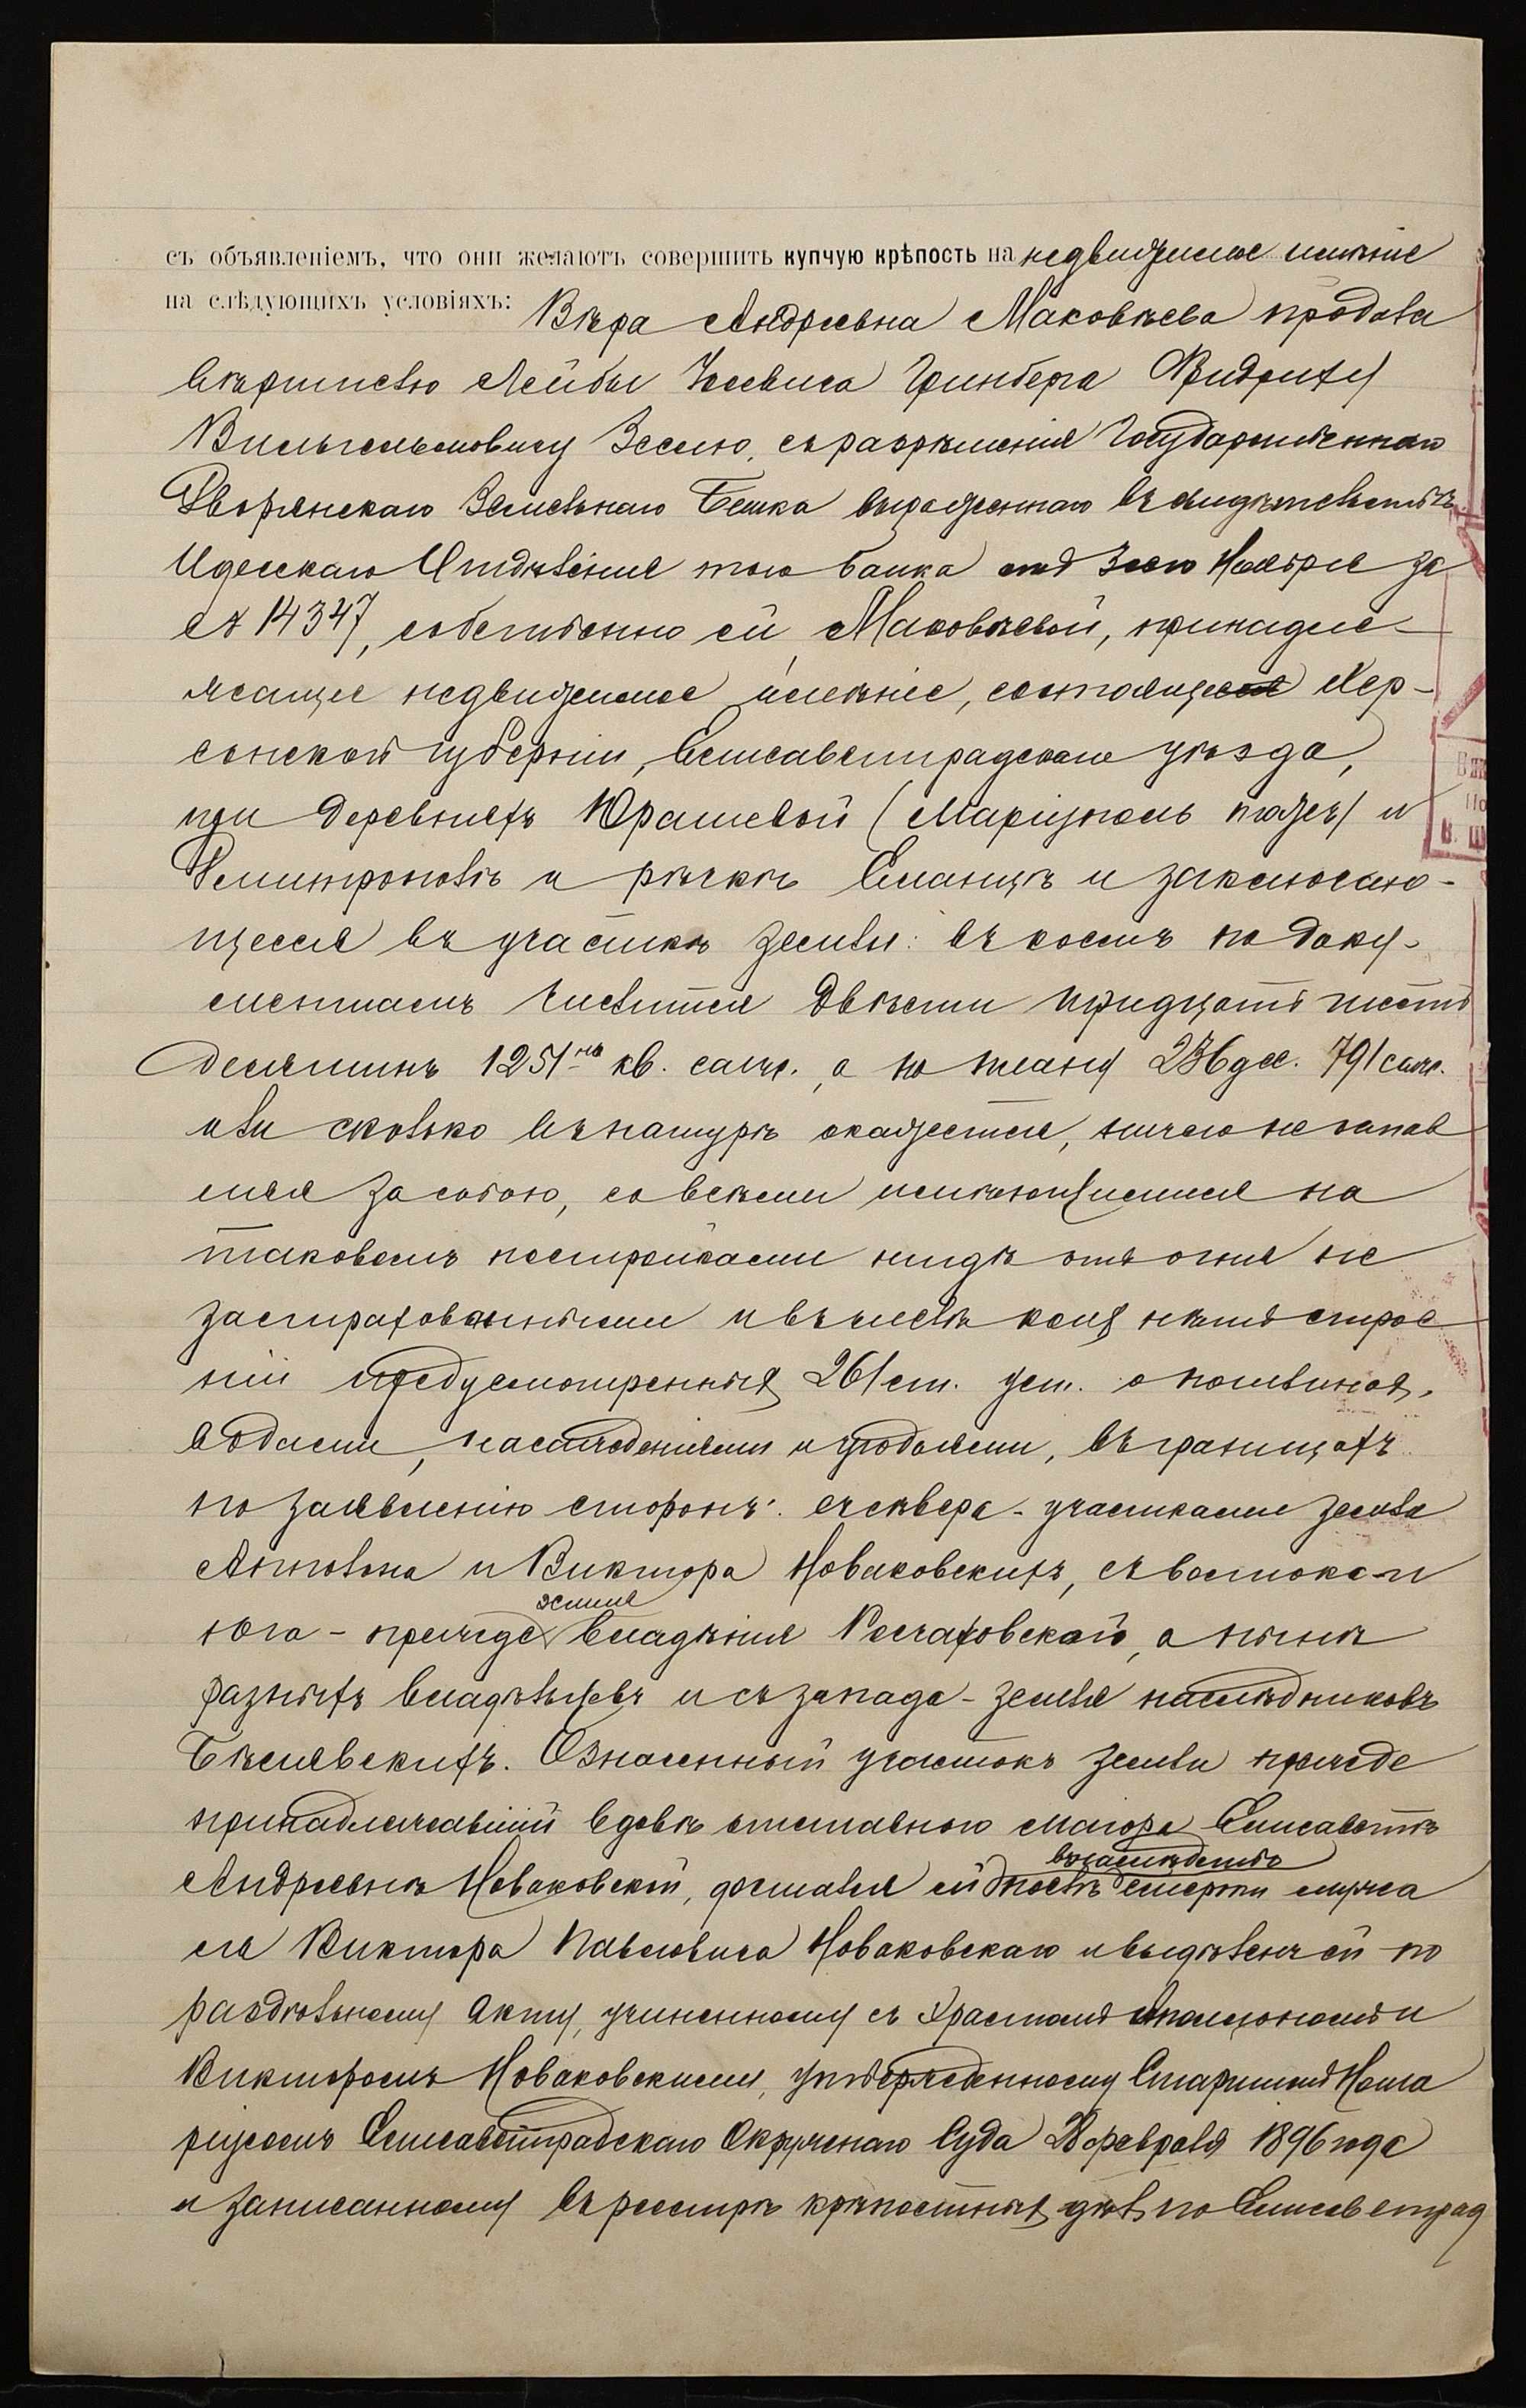 съ объявленіемъ, что они желаютъ совершить купчую крѣпость на недвижимое имѣніе
на слѣдующихъ условіяхъ: Вѣра Андреевна Маковѣева продала
вѣрителю Лейбы Іосевича Гринберга Фридриху
Вильгельмовичу Зеслю, съ разрѣшенія Государственнаго
Дворянскаго Земельнаго Банка выраженнаго въ свидѣтельствѣ
Одесскаго Отдѣленія того банка отъ 3его Ноября за
№ 14347, собственно ей, Маковѣевой, принадле-
жащее недвижимое имѣніе, состоящее Хер-
сонской губерніи, Елисаветградскаго уѣзда,
при деревняхъ Юрашевой (Маріуполь тожъ) и
и рѣчкѣ Еланцѣ и заключаю-
щееся въ участкѣ земли: въ коемъ по доку-
ментамъ числится двѣсти тридцать шесть
десятинъ 1251⁠на кв. саж., а по плану 236 дес. 791 саж.
или сколько въ натурѣ окажется, ничего не остав
ляя за собою, со всѣми имѣющимися на
таковомъ постройками нигдѣ отъ огня не
застрахованными и въ числѣ коихъ нѣтъ строе
ній предусмотренныхъ 261 ст. уст. о пошлинахъ,
водами, насажденіями и угодьями, въ границахъ
по заявленію сторонъ: съ сѣвера - участками земли
Антона и Виктора Новаковскихъ, съ востока и
юга - прежде землею владѣнія а нынѣ
разныхъ владѣльцевъ и съ запада - земля наслѣдниковъ
Бѣлявскихъ. Означенный участокъ земли прежде
принадлежавшій вдовѣ отставного маіора Елисаветѣ
Андреевнѣ Новаковской, достался ей въ наслѣдство послѣ смерти мужа
ея Виктора Павловича Новаковскаго и выдѣленъ ей по
раздѣльному акту, учиненному съ Эрастомъ Аполлономъ и
Викторомъ Новаковскими, утвержденному Старшимъ Нота
ріусомъ Елисаветградскаго Окружнаго Суда 28 февраля 1896 года
и записанному въ реестрѣ крѣпостныхъ дѣлъ по Елисаветград